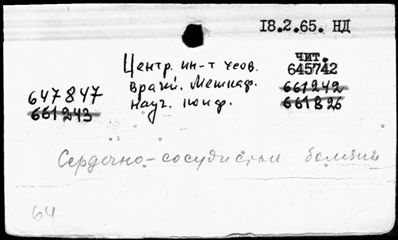 18.2.65. НД
Центр. ин-т усов.
врачей. Межкаф.
науч. конф.
чит.
645742
661242
661826
647847
661243
Сердечно-сосудистая болезни
64